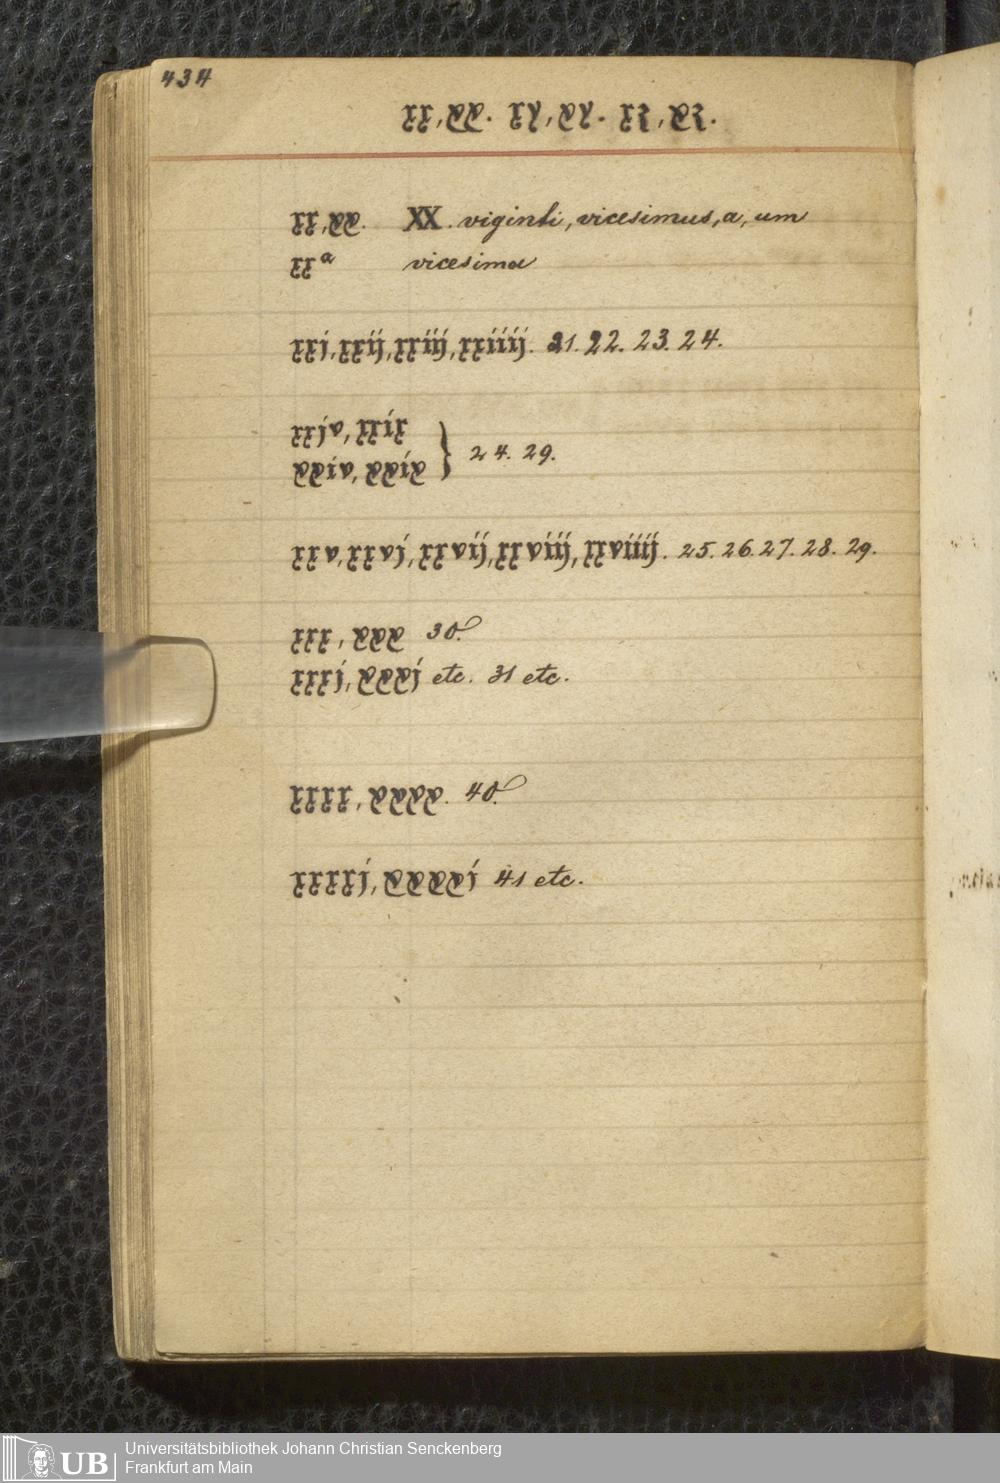 434
xx, xx. xx, xx. xx, xx.
xx, xx. XX. viginti, vicesimus, a, um
xxᵃ vicesima
xxj, xxij, xxiij, xxiiij. 21. 22. 23. 24.
xxjv, xxix
xxiv, xxix } 24. 29.
xxv, xxvj, xxvij, xxviij, xxviiij. 25. 26. 27. 28. 29.
xxx, xxx 30.
xxxj, xxxj etc. 31 etc.
xxxx, xxxx. 40.
xxxxj, xxxxj 41 etc.
Universitätsbibliothek Johann Christian Senckenberg
Frankfurt am Main
UB